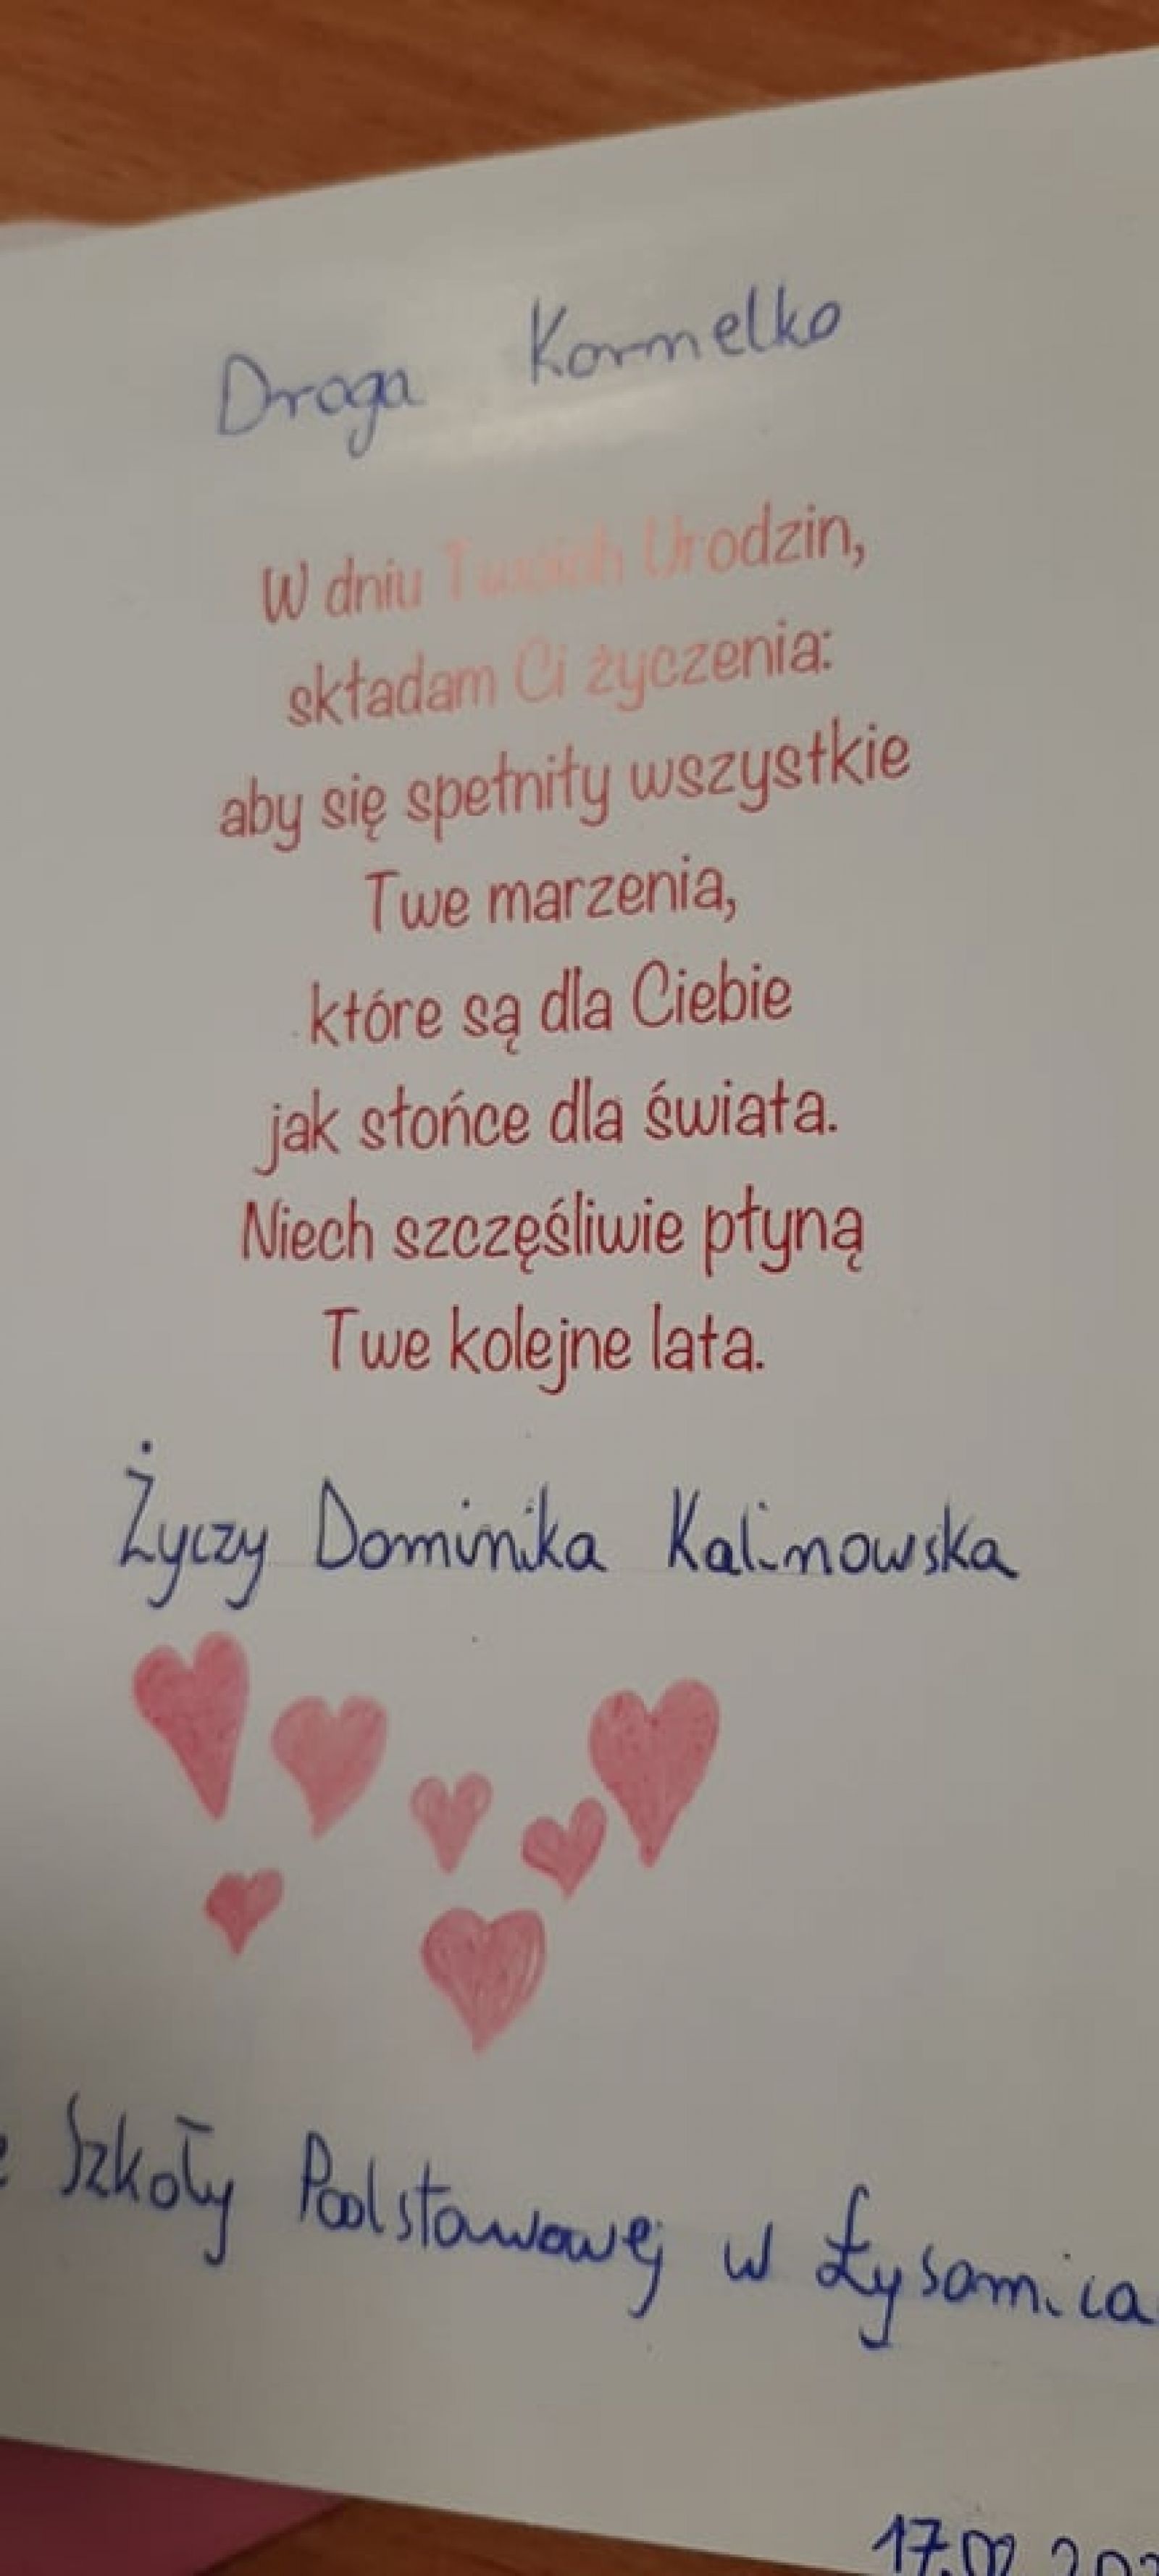 Droga Kormelko
W dniu Twoich Urodzin,
składam Ci życzenia:
aby się spełniły wszystkie
Twe marzenia,
które są dla Ciebie
jak słońce dla świata.
Niech szczęśliwie płyną
Twe kolejne lata.
Życzy Dominika Kalinowska
Szkoły Podstawowej w Łysomica
17.02.202